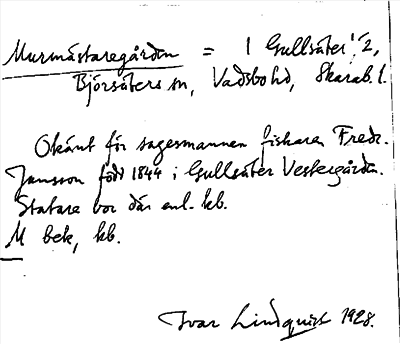 Murmästaregården = 1 Gullsäter 1/2,
Björsäters sn, Vadsbohd, Skarab. l.
Okänt för sagesmannen fiskaren Fredr.
Jansson född 1844 i Gullsäter Vestergården.
Statare bor där enl. kb.
M bek, kb.
Ivar Lindquist 1928.